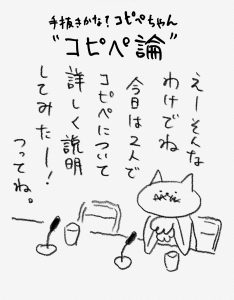 手抜きかな?コピペちゃん
"コピペ論"
えーそんな
わけでね
今日は2人で
コピペについて
詳しく説明
してみたー!
つってね。